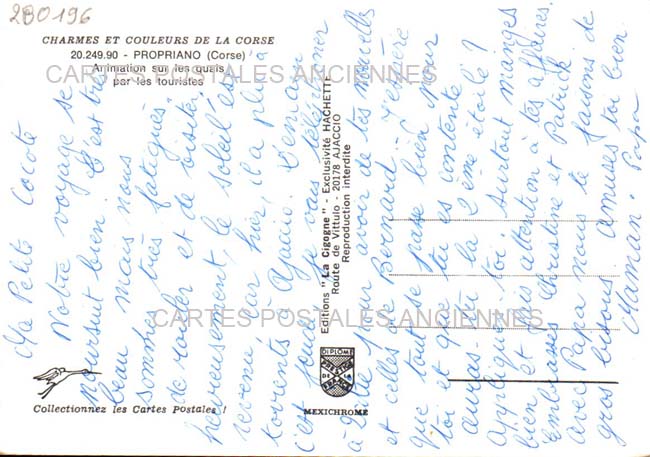 280196
CHARMES ET COULEURS DE LA CORSE
20.249.90 - PROPRIANO (Corse)
Animation sur les quais
par les touristes
CARTES POSTALES ANCIENNES
Editions "La Cigogne" - Exclusivité HACHETTE
Route de Vittulo - 20178 AJACCIO
Reproduction interdite
CARTES POSTALES ANCIENNES
DIPLOME
PRESTIGE
DE LA
FRANCE
MEXICHROME
Collectionnez les Cartes Postales !
Ma Petite Cocote
Notre voyage se
poursuit bien. C'est très
beau mais nous
sommes très fatigués,
de rouler et de visiter
heureusement, le soleil est
revenu car hier, il a plu a
torrents à Ajaccio. Demain
c'est jour je vais téléphoner
à pour avoir de tes nouvelles
et celles de Bernard. J'espère
que tout se passe bien pour
toi et que tu es contente !
auras tu la 2ème étoile ?
Applique toi, surtout manges
bien et fais attention à tes affaires.
Embrasses Christine et Patrick.
avec Papa nous te faisons de
gros bisous amuses toi bien.
Maman. Papa